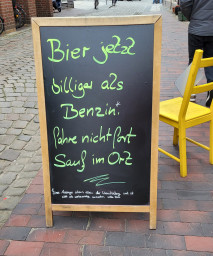 Bier jetzt
billiger als
Benzin!
fahre nicht fort
Sauf im Ort